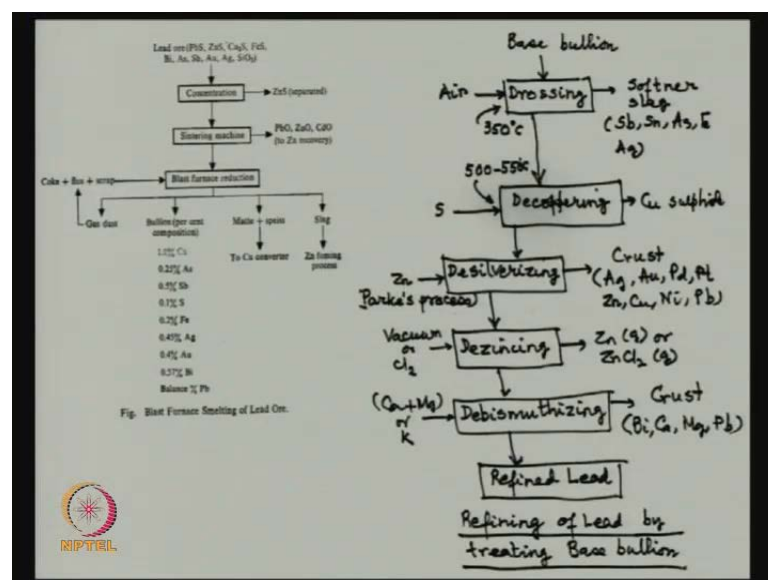 Lead ore (PbS, ZnS, Cu₂S, FeS,
Bi, As, Sb, Au, Ag, SiO₂)
Concentration
ZnS (separated)
Sintering machine
PbO, ZnO, CdO
(to Zn recovery)
Coke + flux + scrap
Blast furnace reduction
Gas dust
Bullion (per cent
composition)
Matte + speiss
Slag
To Cu converter
Zn fuming
process
1.0% Cu
0.25% As
0.5% Sb
0.1% S
0.2% Fe
0.45% Ag
0.4% Au
0.37% Bi
Balance % Pb
Fig. Blast Furnace Smelting of Lead Ore.
Base bullion
Air
Drossing
350°C
Softner
slag
(Sb, Sn, As, &
Ag)
500-55
S
Decoppering
Cu sulphide
Zn
Parke's process
Desilverizing
Crust
(Ag, Au, Pd, Pt
Zn, Cu, Ni, Pb)
Vacuum
or
Cl₂
Dezincing
Zn (g) or
ZnCl₂ (g)
(Ca+Mg)
or
K
Debismuthizing
Crust
(Bi, Ca, Mg, Pb)
Refined Lead
Refining of Lead by
treating Base bullion
NPTEL